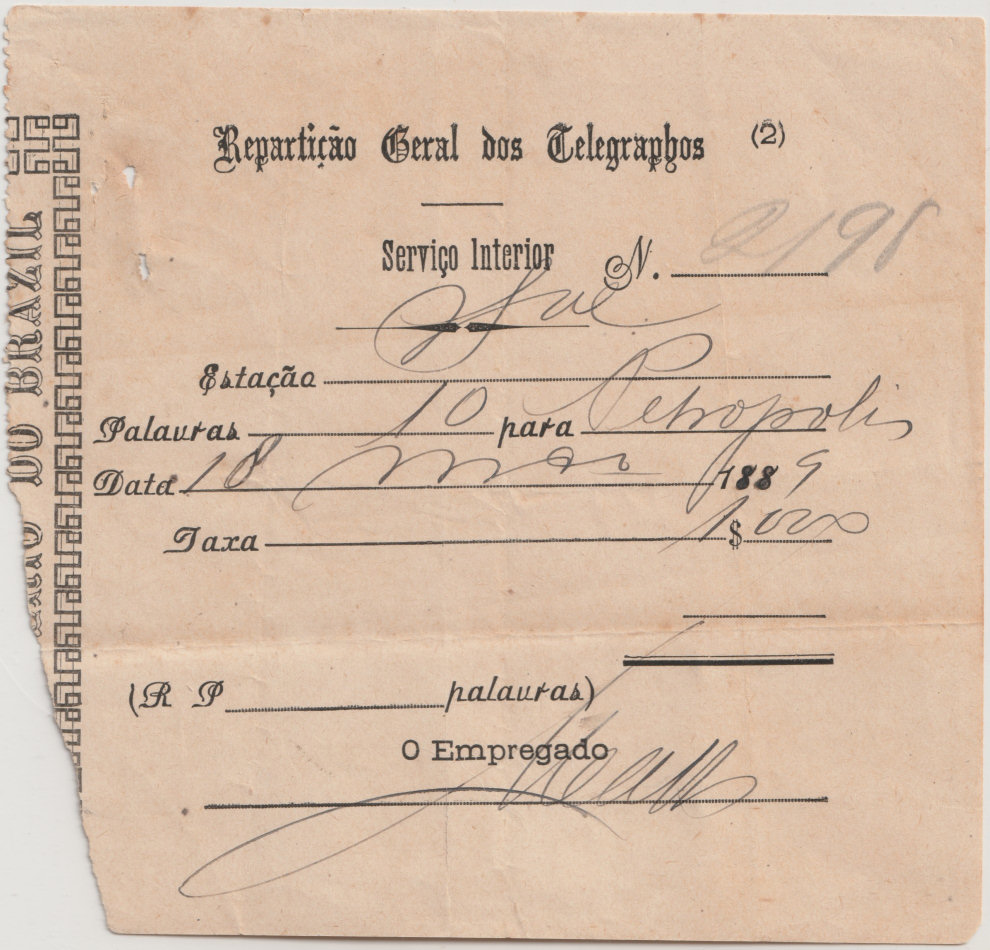 Repartição Geral dos Telegraphos (2)
Serviço Interior N. 2198
Estação
Palavras 10 para Petropolis
Data 18 1889
Taxa 1$000
(R P palavras)
O Empregado
DO BRAZIL